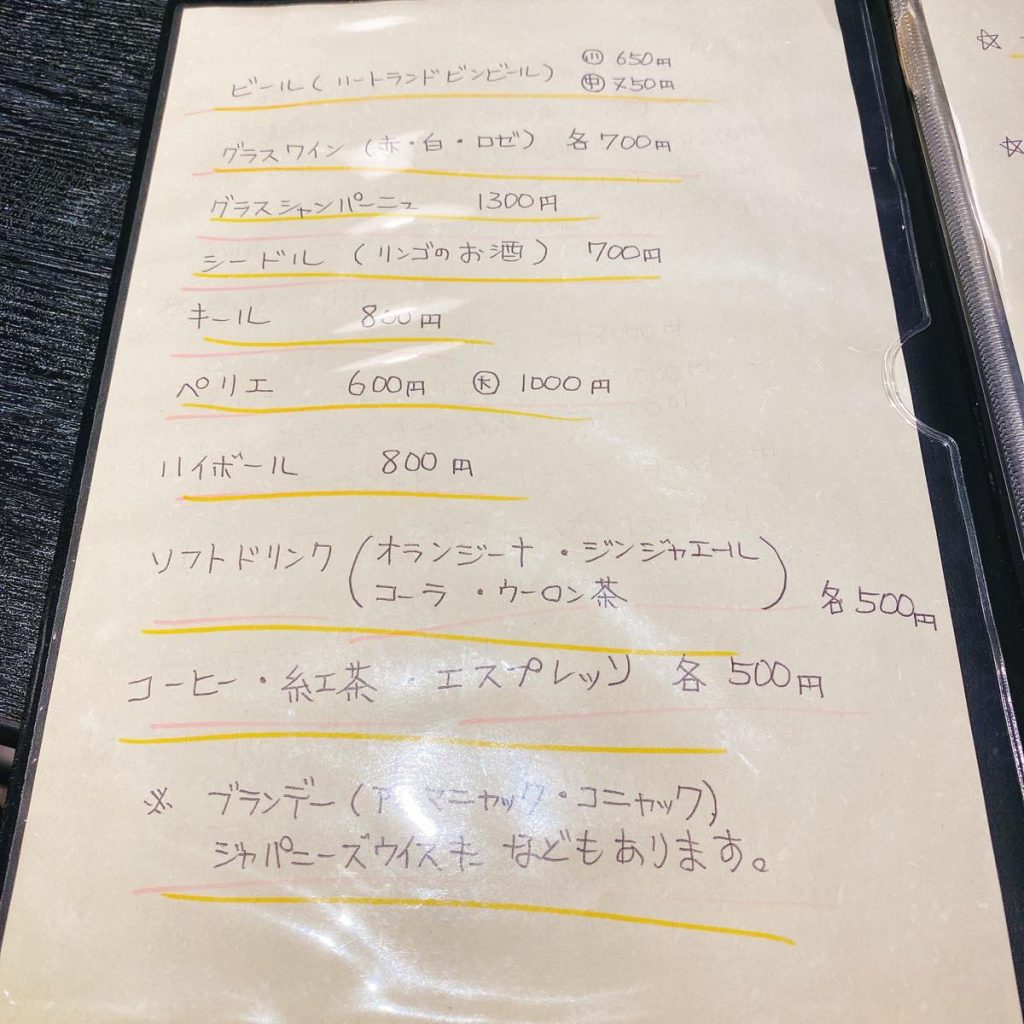 ビール(ハートランドビンビール) ㊙小 650円
㊥ 750円
グラスワイン (赤・白・ロゼ) 各700円
グラスシャンパーニュ 1300円
シードル (リンゴのお酒) 700円
キール 800円
ペリエ 600円 大 1000円
ハイボール 800円
ソフトドリンク (オランジーナ ・ジンジャエール
コーラ ・ウーロン茶) 各500円
コーヒー・紅茶 ・エスプレッソ 各 500円
※ ブランデー(アルマニャック・コニャック)
ジャパニーズウイスキー などもあります。